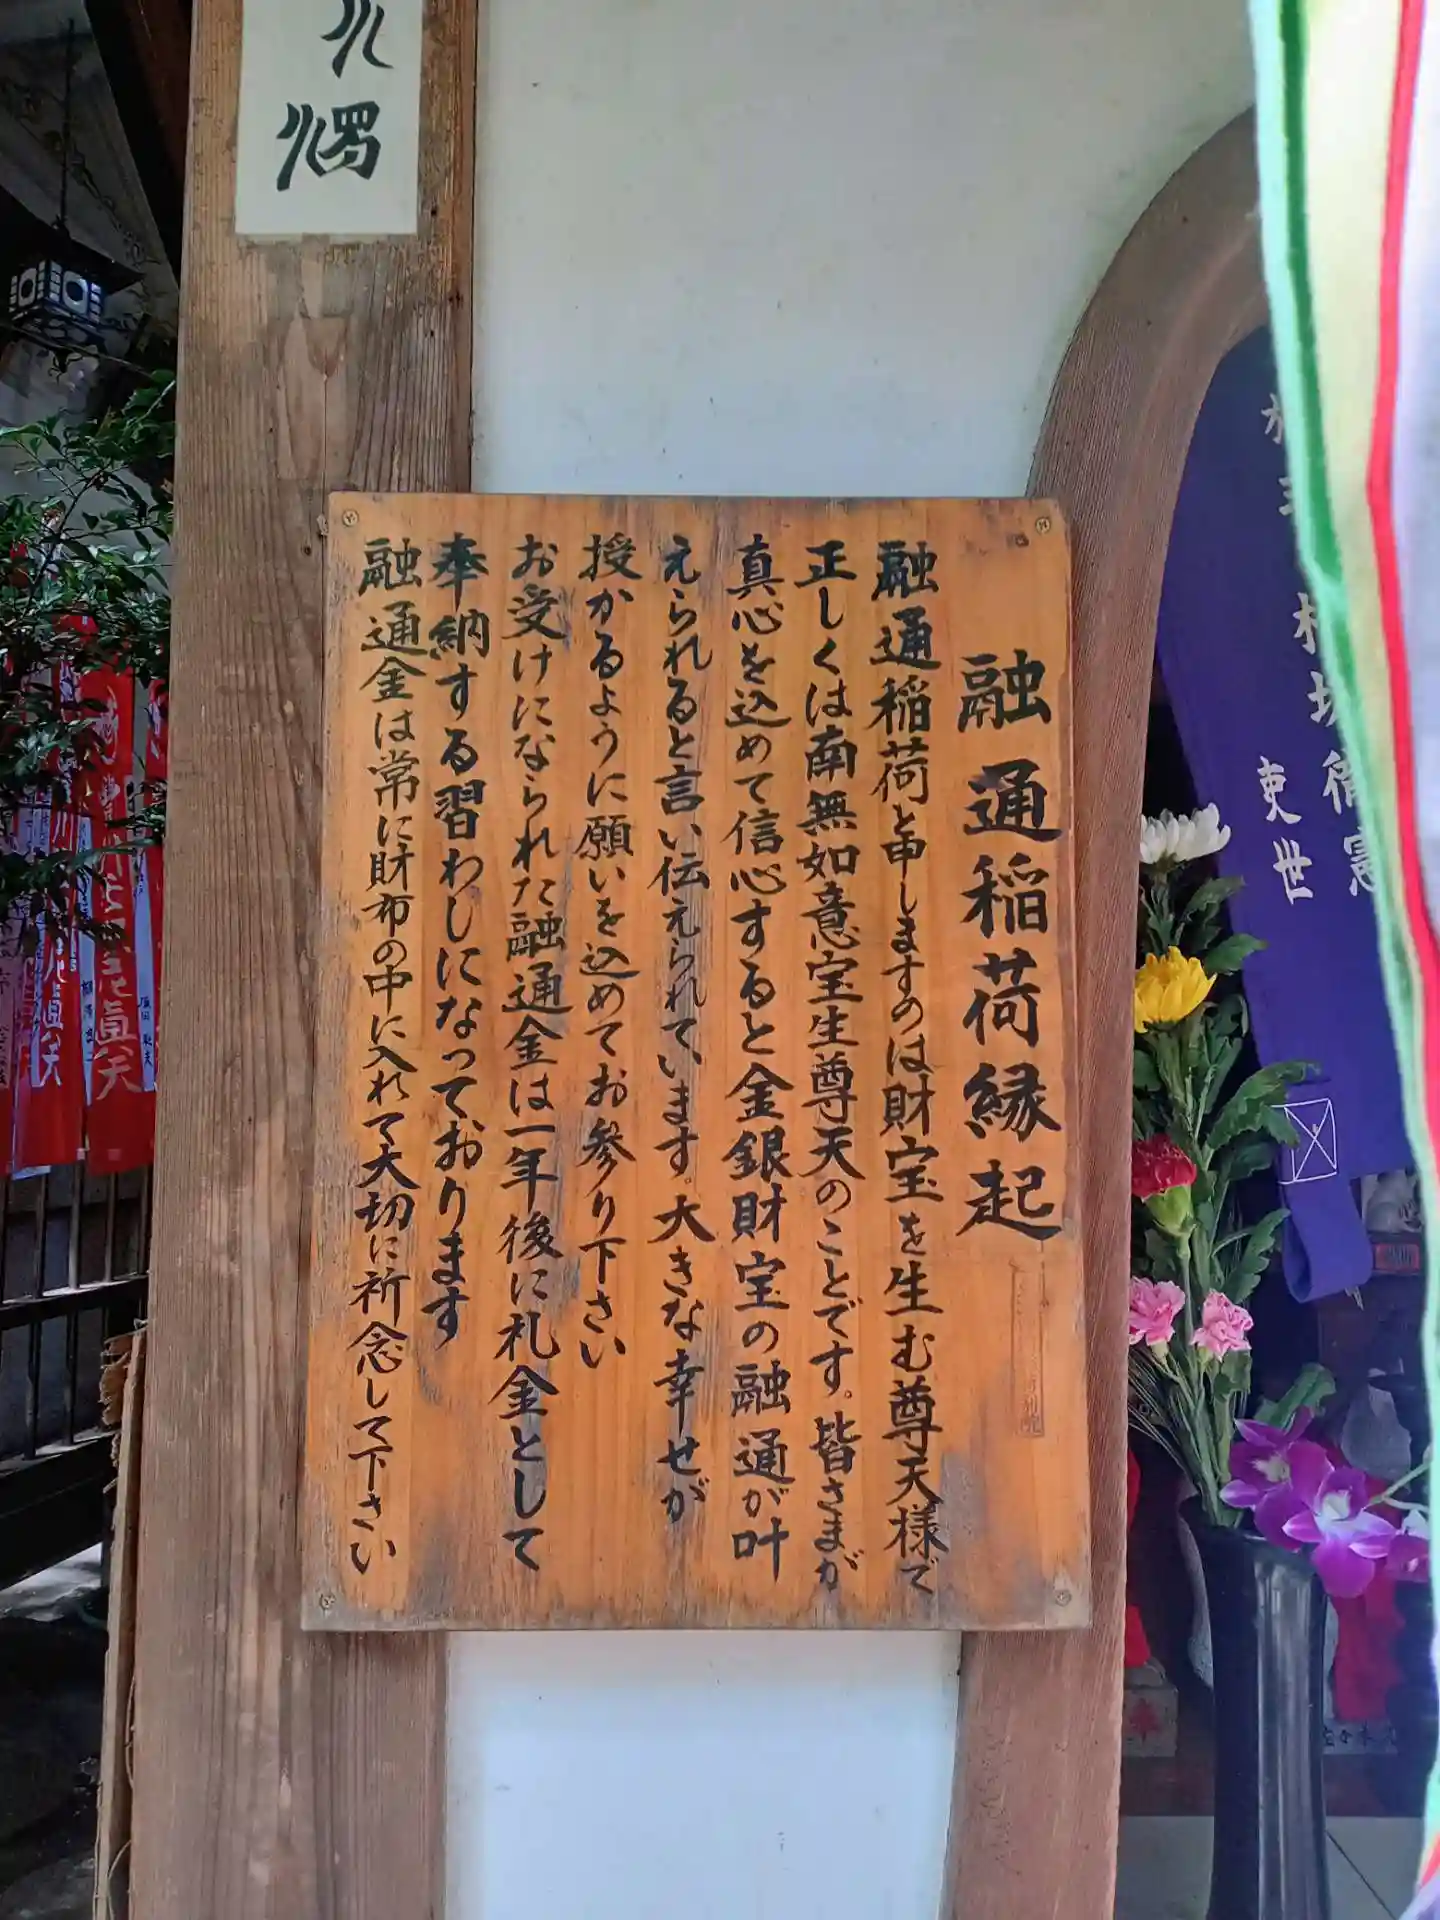 融通稲荷縁起
融通稲荷と申しますのは財宝を生む尊天様で
正しくは南無如意宝生尊天のことです。皆さまが
真心を込めて信心すると金銀財宝の融通が叶
えられると言い伝えられています。大きな幸せが
授かるように願いを込めてお参り下さい
お受けになられた融通金は一年後に札金として
奉納する習わしになっております
融通金は常に財布の中に入れて大切に祈念し下さい
吏世